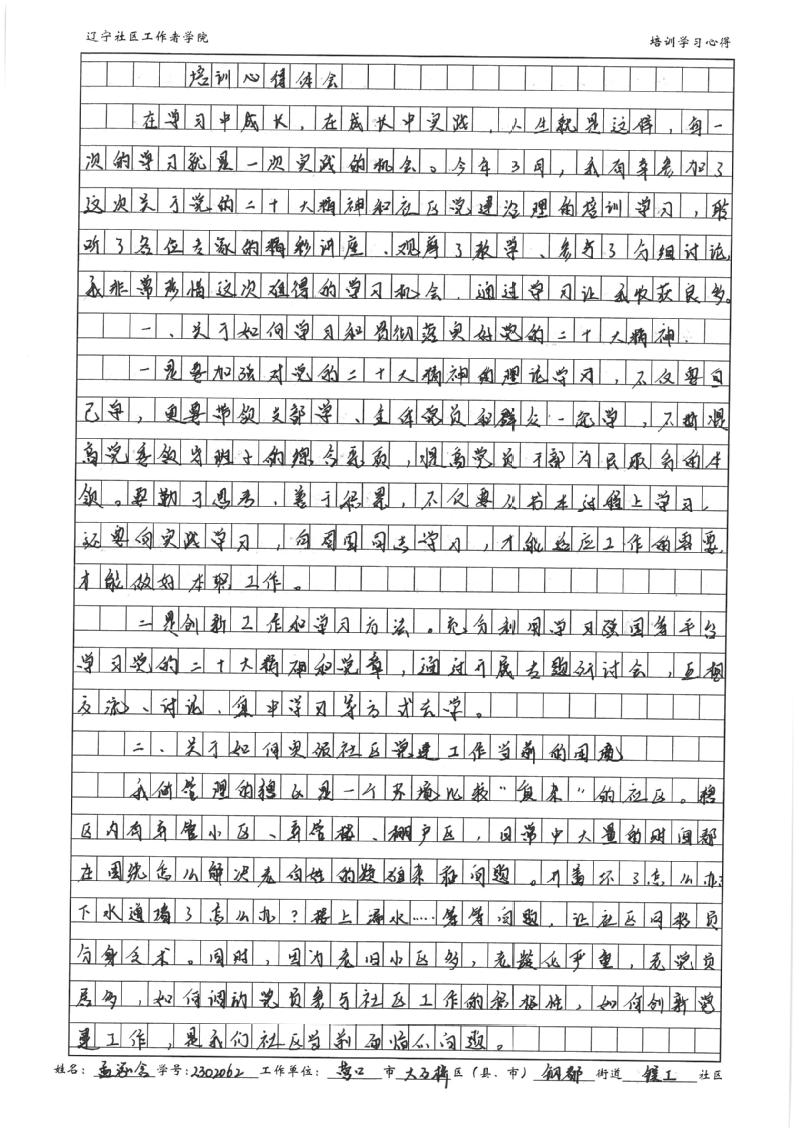 辽宁社区工作者学院 培训学习心得
培训心得体会
在学习中成长，在成长中实践，人生就是这样，每一
次的学习就是一次实践的机会。今年3月，我有幸参加了
这次关于党的二十大精神和社区党建治理的培训学习，聆
听了各位专家的精彩讲座、观摩了教学、参与了分组讨论,
我非常珍惜这次难得的学习机会，通过学习让我收获良多。
一、关于如何学习和贯彻落实好党的二十大精神.
一是要加强对党的二十大精神的理论学习，不仅要自
己学，更要带领支部学、全体党员和群众一起学，不断提
高党委领导班子的综合素质，提高党员干部为民服务的本
领。要勤于思考、善于积累，不仅要从书本过程上学习,
还要向实践学习，向周围同志学习，才能适应工作的需要,
才能做好本职工作。
二是创新工作和学习方法。充分利用学习强国等平台
学习党的二十大精神和党章，通过开展专题研讨会，互相
交流、讨论、集中学习等方式去学。
二、关于如何加强社区党建工作当前的困境
我们管理的社区是一个环境比较“复杂”的社区。社
区内有弃管小区、弃管楼、棚户区，日常中大量的时间都
在围绕怎么解决老百姓的疑难杂症问题。井盖坏了怎么办?
下水道堵了怎么办？楼上漏水……等等问题，让社区网格员
分身乏术。同时，因为老旧小区多，老龄化严重，老党员
居多，如何调动党员参与社区工作的积极性，如何创新党
建工作，是我们社区当前面临的问题。
姓名：孟 学号：2302062 工作单位：营口 市 大石桥 区（县、市） 钢都 街道 镁工 社区